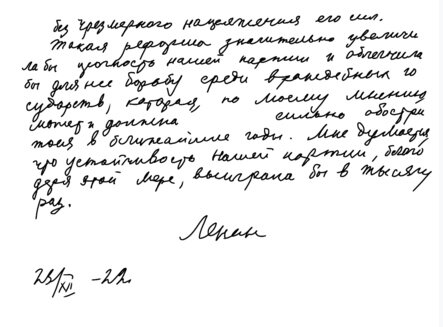 без чрезмерного напряжения его сил.
Такая реформа значительно увеличи
ла бы прочность нашей партии и облегчила
бы для нее борьбу среди враждебных го
сударств, которая, по моему мнению,
может и должна сильно обостри
ться в ближайшие годы. Мне думается,
что устойчивость нашей партии, благо
даря этой мере, выиграла бы в тысячу
раз.
Ленин
23/XI -22.